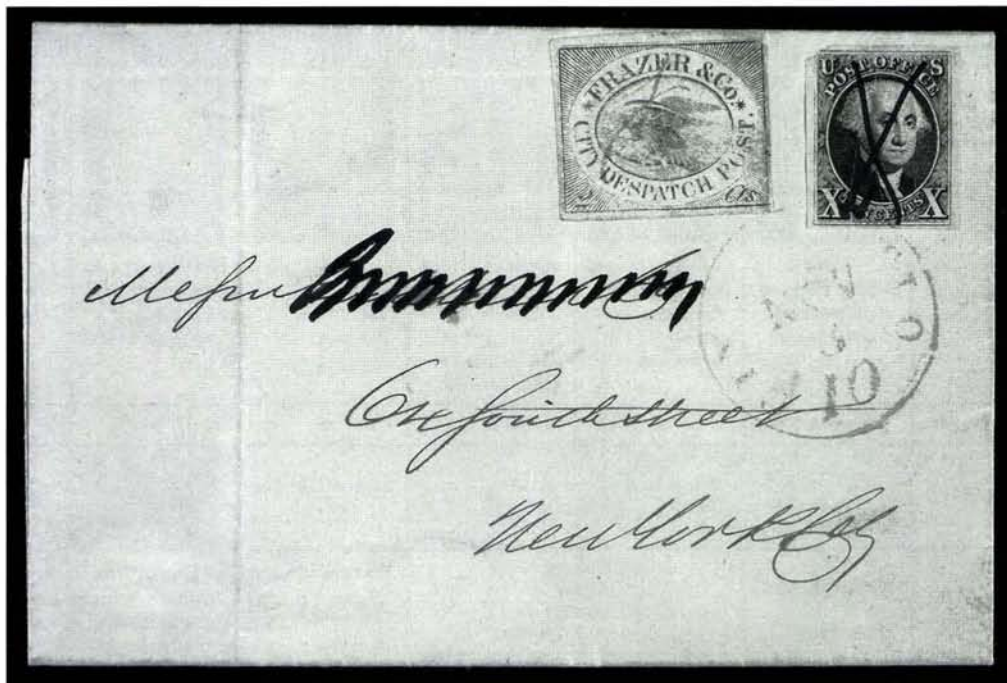 FRAZER & Co.
CITY DESPATCH POST.
2 Cts
U S
POST OFFICE
X CENTS X
NOV
10
Messrs
South Street
New York City